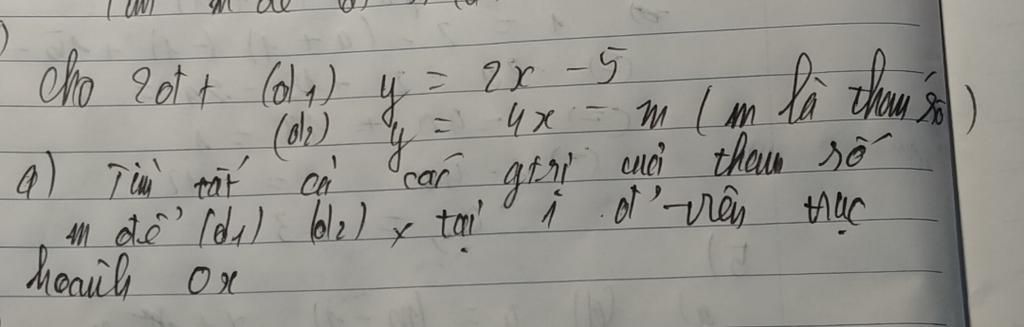 )
Cho 2đt (d1) y = 2x - 5
(d2) y = 4x - m ( m là tham số )
a) Tìm tất cả các gtrị của tham số
m để (d1) (d2) x tại 1 đ' trên trục
hoành Ox